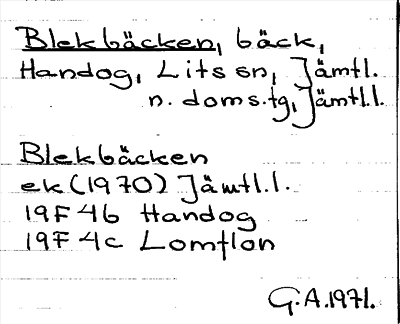 Blekbäcken, bäck,
Handog, Lits sn, Jämtl.
n. doms.tg, Jämtl.l.
Blekbäcken
ek (1970) Jämtl.l.
19F 4b Handog
19F 4c Lomtlon
G.A. 1971.